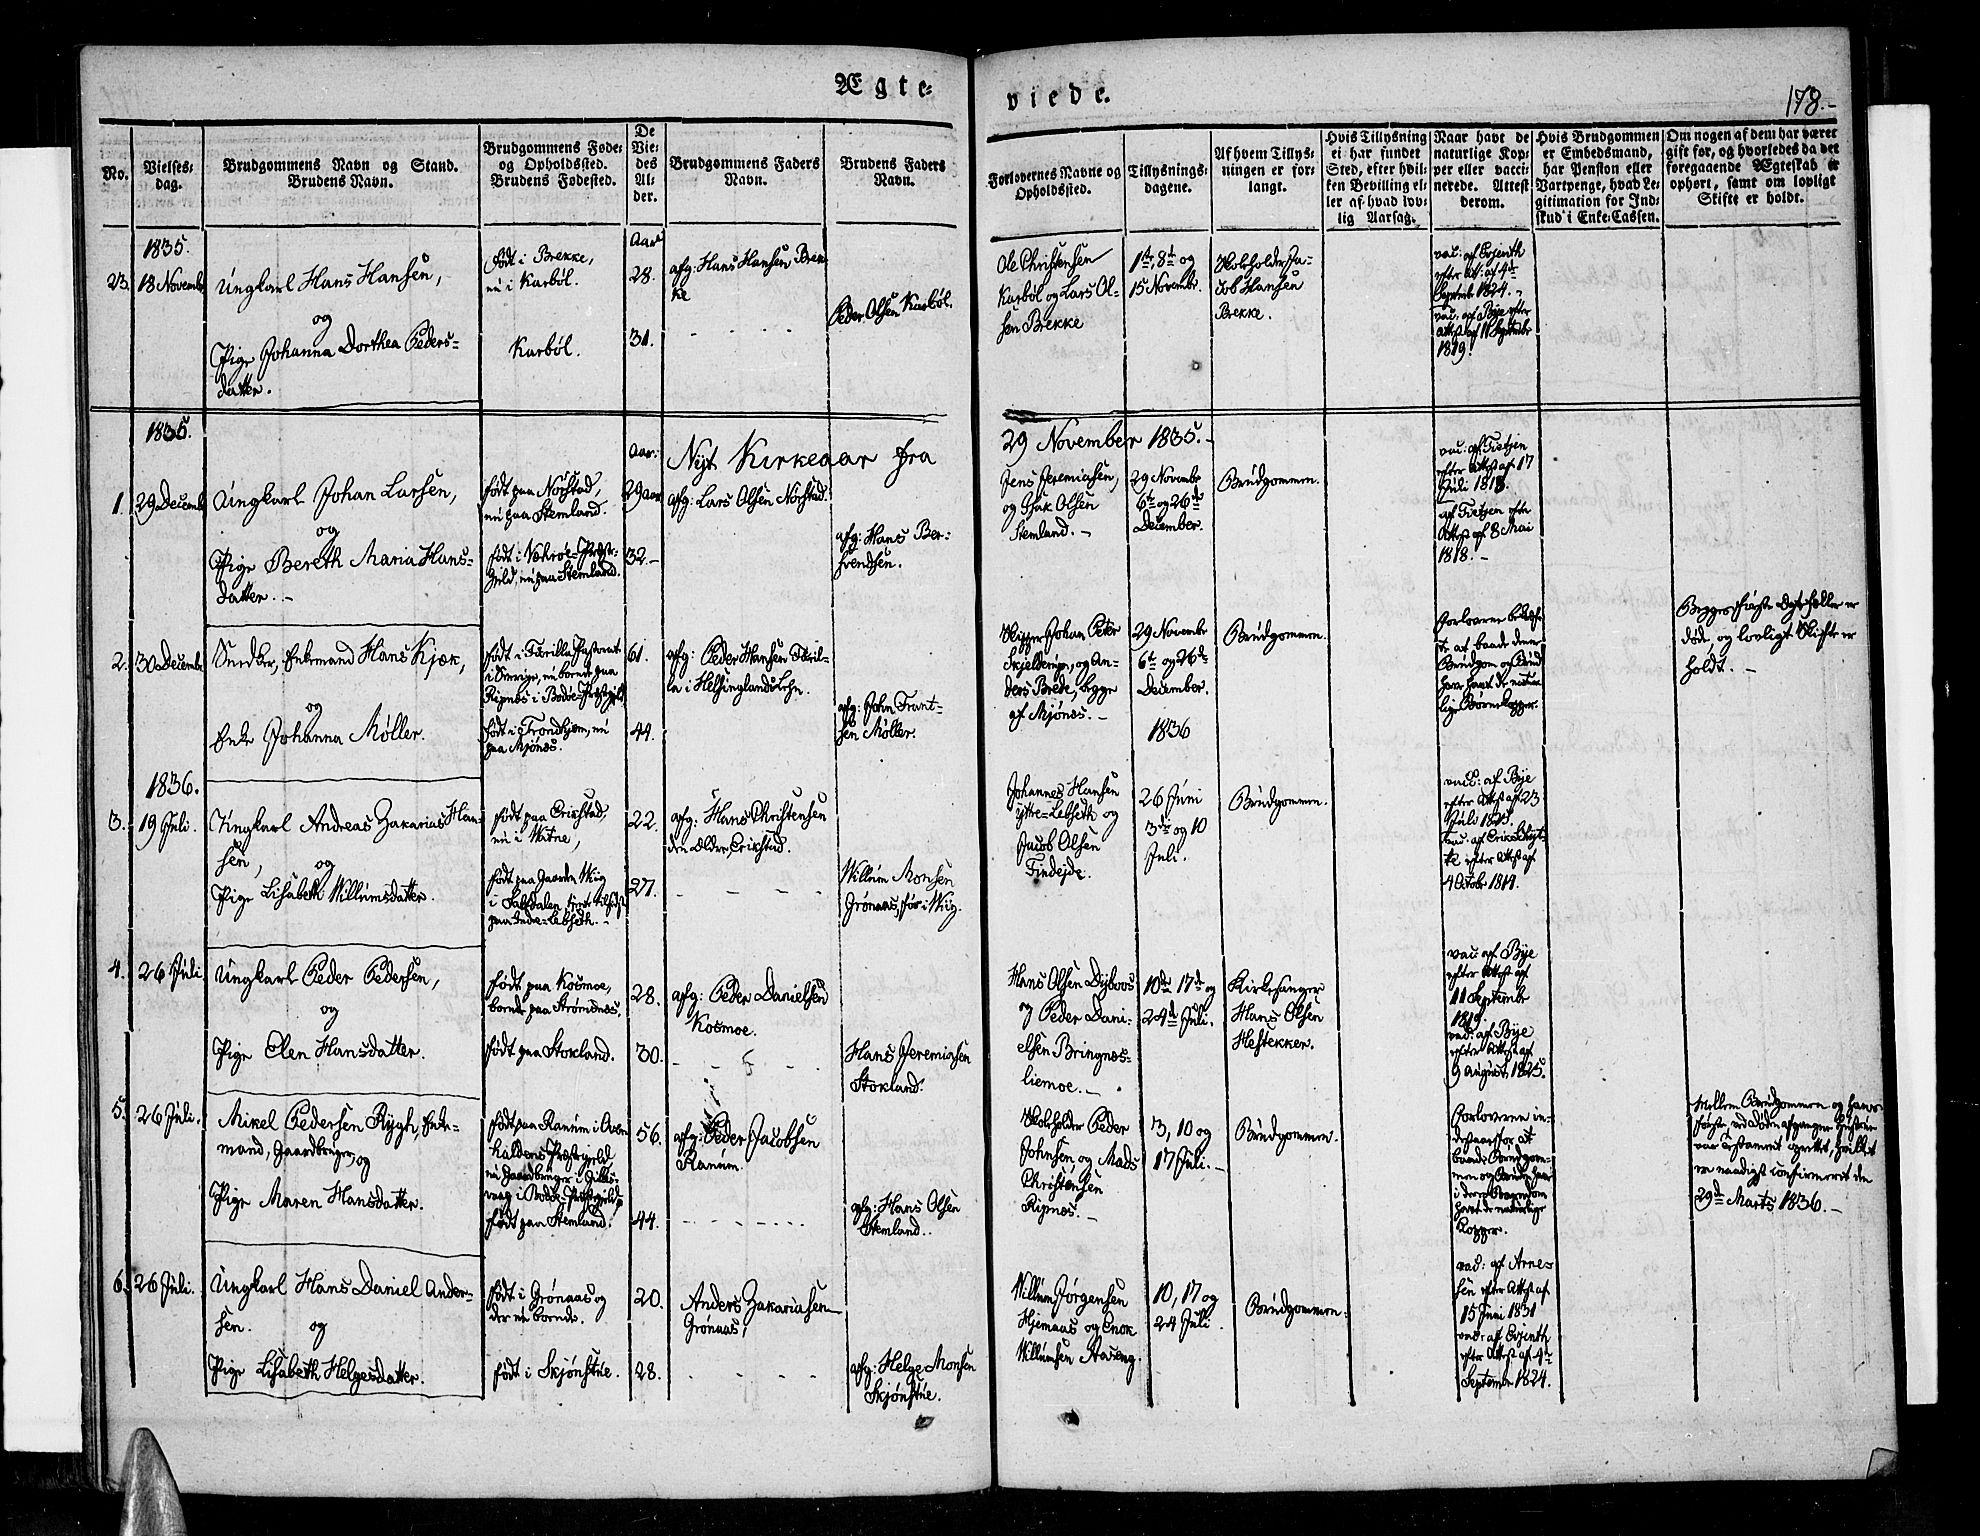 Ægte-
viede.
178.-
No.
Vielses-
dag.
Brudgommens Navn og Stand.
Brudens Navn.
Brudgommens Føde-
og Opholdssted.
Brudens Fødested.
De
Vie-
des
Al-
der.
Brudgommens Faders
Navn.
Brudens Faders
Navn.
Forlovernes Navne og
Opholdssted.
Tillysnings-
dagene.
Af hvem Tillys-
ningen er for-
langt.
Hvis Tillysning
ei har fundet
Sted, efter hvil-
ken Bevilling el-
ler af hvad lov-
lig Aarsag.
Naar havt de
naturlige Kop-
per eller vacci-
nerede. Attest
derom.
Hvis Brudgommen
er Embedsmand,
har Pension eller
Vartpenge, hvad Le-
gitimation for Ind-
skud i Enke-Cassen.
Om nogen af dem har været
gift før, og hvorledes da det
foregaaende Ægteskab er
ophørt, samt om lovligt
Skifte er holdt.
1835.
23.
18 Novembr
Ungkarl Hans Hansen,
og
Pige Johanna Dorthea Peders-
datter.
født i Brekke,
nu i Karbøl.
Karbøl.
Aar
28.
31.
afg: Hans Hansen Brek-
ke
Peder Olsen Karbøl.
Ole Christensen
Karbøl og Lars Ol-
sen Brekke
1te, 8de og
15 Novembr.
Holeholder Ja-
cob Hansen
Brekke.
vac: af Evjenth
efter Att: af 4de
Septembr 1824.
vac: af Bye efter
Attest af 11 Septembr
1819.
1835.
Nyt Kirkeaar fra
29 November 1835.-
1.
29 Decemb
Ungkarl Johan Larsen,
og
Pige Bereth Maria Hans-
datter.-
født paa Nørstad,
nu paa Stemland.
født i Præste-
geld, nu paa Stemland.
Aar.
29 aar
32.-
afg: Lars Olsen Nørstad.
afg: Hans Ber-
hrendsen.
Jens Jeremiasen,
og Isak Olsen
Stemland.-
29 Novembr
6te og 26de
December.
Brudgommen.
vac: af Tietjen
efter Attest af 17
Juli 1818.
af Tietjen efter
Attest af 8 Mai
1818.-
2.
30 Decembr
Snedker, Enkemand Hans Kjæk,
og
Enke Johanna Møller.
født i Pastorat
i Sverige, nu boende paa
Ripnæs i Bodøe-Præstgjeld
født i Trondhjem, nu
paa Mjønæs.
61.
44.
afg: Peder Hansen
la i Helsinglands Lehn.
afg: John Frant-
sen Møller.
Skipper Johan Peter
Skjelderup, og An-
ders Brede, begge
af Mjønæs.-
29 Novembr
6te og 26de
December.
1836
Brudgommen.
Forloverne
te at baade denne
Brudgom og Brud
have havt de natur-
lige Børnekopper.
Begges første Ægtefæller er
døde, og lovligt Skifte er
holdt.-
1836.
3.
19 Juli.
Ungkarl Andreas Zakarias Han-
sen,
og
Pige Lisabeth Willumsdatter.
født paa Erikstad,
nu i Watne,
født paa Gaarden Wiig
i Saltdalen,
paa Indre-Lebseth.-
22.
27.
afg: Hans Christensen
den Ældre, Erikstad.
Willum Monsen
Grønaas, før i Wiig.
Johannes Hansen
Yttre-Lebseth og
Jacob Olsen
Findejde.
26 Juni
3die og 10
Juli.
Brudgommen.
vac: af Bye
efter Attest af 23
Juli 1825.
vac: af
efter Attest af
4 Octobr 1814.
4.
26 Juli
Ungkarl Peder Pedersen,
og
Pige Elen Hansdatter.
født paa Kosmoe,
boende paa Strømsnæs.
født paa Stokland.
28.
30.
afg: Peder Danielsen
Kosmoe.
Hans Jeremiasen
Stokland.
Hans Olsen Dybvos
og Peder Dani-
elsen Bringnes-
liemoe.-
10de 17de og
24de Juli.
Kirkesanger
Hans Olsen
Hestekker.
vac: af Bye
efter Attest af
11 Septembr
1819.
vac: af Bye
efter Attest af
9 August 1825.
5.
26 Juli.
Mikel Pedersen Rygh, Enke-
mand, Gaardbruger, og
Pige Maren Hansdatter.
født paa Ranum i Over-
haldens Præstegjeld
nu Gaardbruger i Gillis-
vaag i Bodøe-Præstegjeld,
født paa Stemland.
56.
44.
afg: Peder Jacobsen
Ranum.
afg: Hans Olsen
Stemland.
Holeholder Peder
Johnsen og Mads
Christensen
Ripnæs.-
3, 10 og
17 Juli.-
Brudgommen.
Forloverne in-
destaaer for at
baade Brudgom-
men og Bruden have
i deres Barndom
havt de naturlige
Kopper.
Mellem Brudgommen og hans
første ved Døden afgangne Hustrue
var Testament oprettet, hvilket
er naadigst confirmeret den
29de Marts 1836.-
6.
26 Juli.
Ungkarl Hans Daniel Ander-
sen.
og
Pige Lisabeth Helgesdatter.
født i Grønaas og
der nu boende.
født i Skjønstue.
20.
28.
Anders Zakariasen
Grønaas,
afg: Helge Monsen
Skjønstue.
Willum Jørgensen
Hjemaas og Enok
Willumsen Aaseng.
10, 17 og
24 Juli
Brudgommen.
vac: af Arne-
sen efter Attest af
15 Juni 1831
vac: af Evjenth
efter Attest af 4de
Septembr 1824.